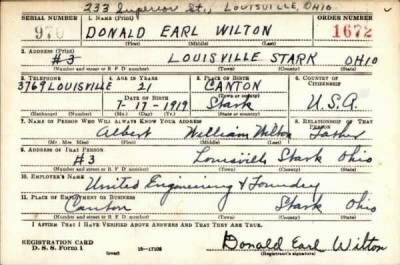 233 Superior St., LOUISVILLE, OHIO
SERIAL NUMBER 1. NAME (Print) ORDER NUMBER
970 DONALD EARL WILTON 1672
(First) (Middle) (Last)
2. ADDRESS (Print)
#3 LOUISVILLE STARK OHIO
(Number and street or R. F. D. number) (Town) (County) (State)
3. TELEPHONE 4. AGE IN YEARS 5. PLACE OF BIRTH 6. COUNTRY OF CITIZENSHIP
3769 LOUISVILLE 21 CANTON
DATE OF BIRTH
7-17-1919 Stark U.S.A.
(Exchange) (Number) (Mo.) (Day) (Yr.) (State or country)
7. NAME OF PERSON WHO WILL ALWAYS KNOW YOUR ADDRESS 8. RELATIONSHIP OF THAT PERSON
Albert William Wilton Father
(Mr. Mrs. Miss) (First) (Middle) (Last)
9. ADDRESS OF THAT PERSON
#3 Louisville Stark Ohio
(Number and street or R. F. D. number) (Town) (County) (State)
10. EMPLOYER'S NAME
United Engineering & Foundry
11. PLACE OF EMPLOYMENT OR BUSINESS
Canton Stark Ohio
(Number and street or R. F. D. number) (Town) (County) (State)
I AFFIRM THAT I HAVE VERIFIED ABOVE ANSWERS AND THAT THEY ARE TRUE.
REGISTRATION CARD
D. S. S. FORM 1 16-17105 Donald Earl Wilton
(Registrant's signature)